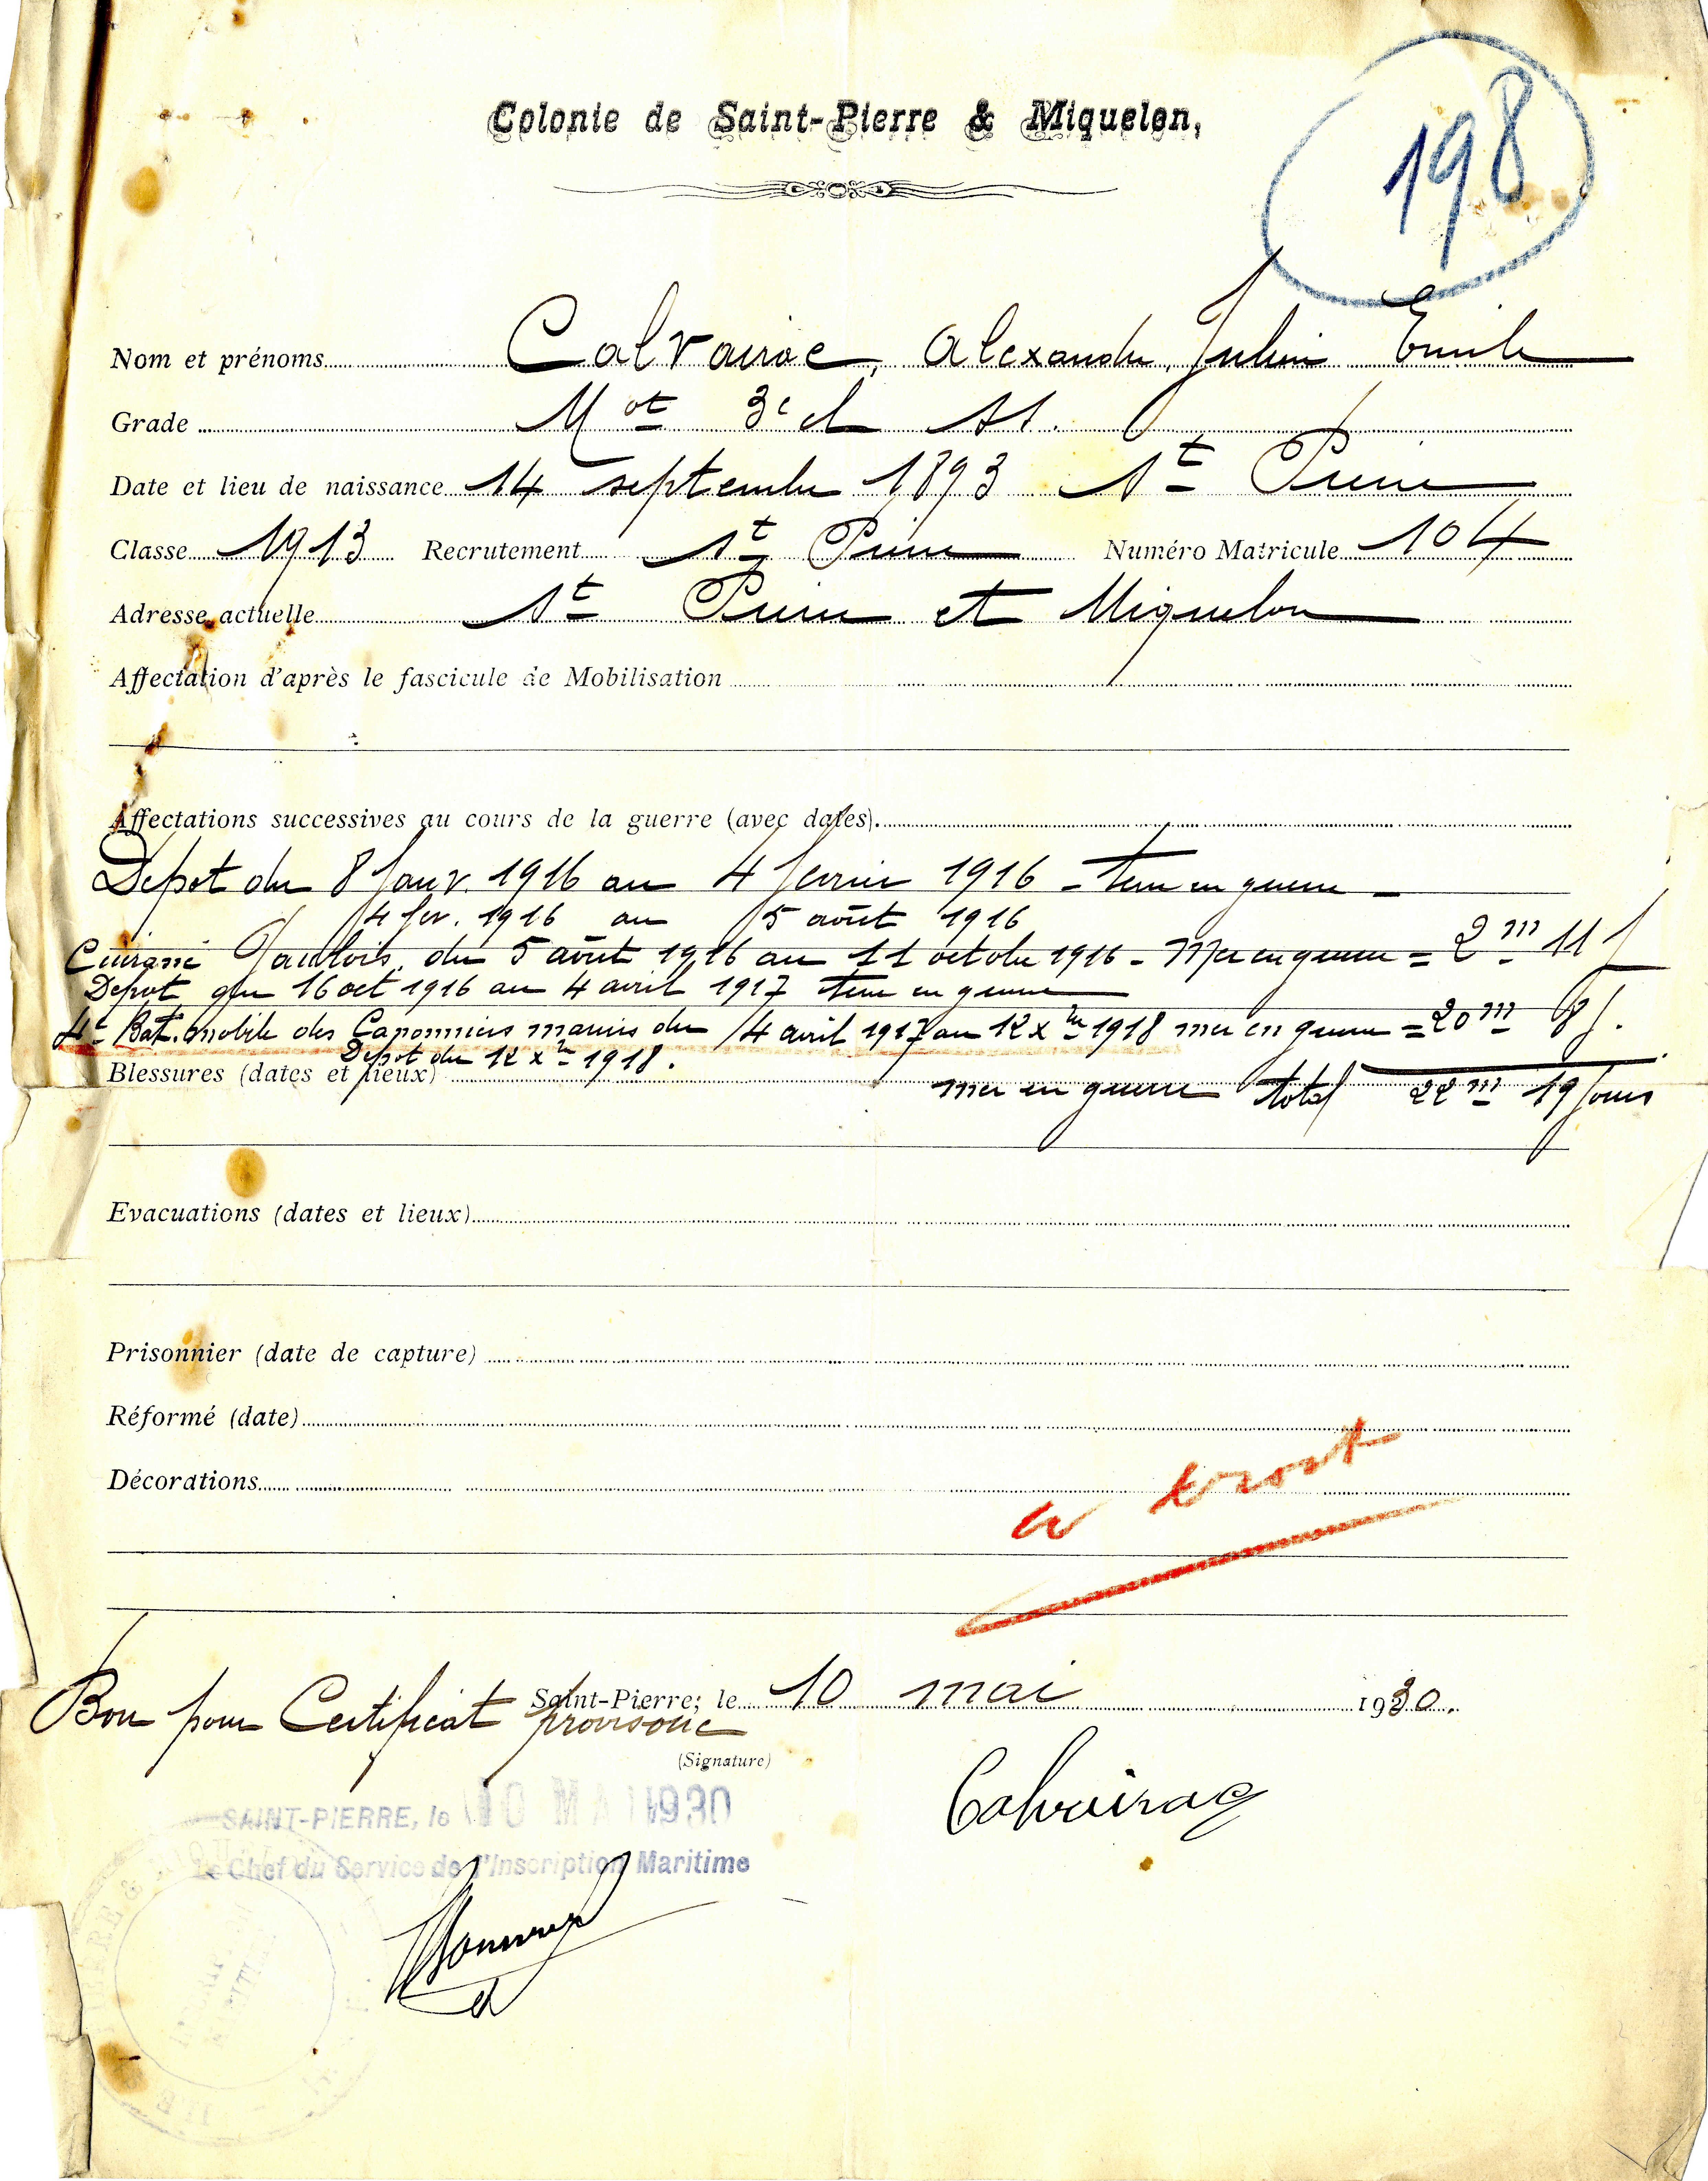 Colonie de Saint-Pierre & Miquelon,
198
Nom et prénoms Calvairac, Alexandre, Julien Emile
Grade Mot 3e cl St.
Date et lieu de naissance 14 septembre 1893 St Pierre
Classe 1913 Recrutement St Pierre Numéro Matricule 104
Adresse actuelle St Pierre et Miquelon
Affectation d'après le fascicule de Mobilisation
Affectations successives au cours de la guerre (avec dates).
Dépot du 8 Janv. 1916 au 4 février 1916 - terre en guerre -
4 fev. 1916 au 5 août 1916
Cuirassé Gaulois du 5 août 1916 au 11 octobre 1916 - Mer en guerre = 2 m 11 j
Depot du 16 oct 1916 au 4 avril 1917 terre en guerre
4e Bat. mobile des Canonniers marins du 4 avril 1917 au 12 Xbre 1918 mer en guerre = 20 m 8 j.
Dépot du 12 Xbre 1918.
Blessures (dates et lieux)
mer en guerre total 22 m 19 jours
Evacuations (dates et lieux)
Prisonnier (date de capture)
Réformé (date)
Décorations
a droit
Saint-Pierre, le 10 mai 1930.
Bon pour Certificat provisoire
(Signature)
Calvairac
SAINT-PIERRE, le 10 MAI 1930
Le Chef du Service de l'Inscription Maritime